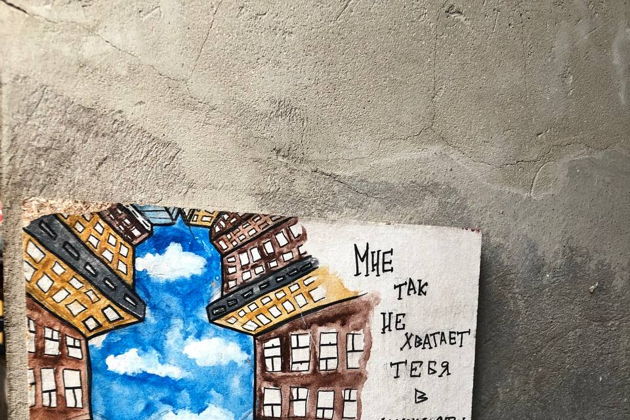 Мне
так
не
хватает
тебя
в